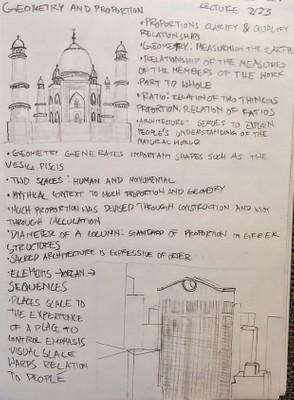 GEOMETRY AND PROPORTION
LECTURE 2/23
• PROPORTIONS CLARIFY & QUALIFY
RELATIONSHIPS
• GEOMETRY: MEASURING THE EARTH
• RELATIONSHIP OF THE MEASURES
OF THE MEMBERS OF THE WORK
- PART TO WHOLE
• RATIO: RELATION OF TWO THINGS
PROPORTION: RELATION OF RATIOS
• ARCHITECTURE SERVES TO EXPLAIN
PEOPLE'S UNDERSTANDING OF THE
NATURAL WORLD
• GEOMETRY GENERATES IMPORTANT SHAPES SUCH AS THE
VESICA PISCIS
• TWO SCALES: HUMAN AND MONUMENTAL
• MYTHICAL CONTEXT TO MUCH PROPORTION AND GEOMETRY
• MUCH PROPORTION WAS DEVISED THROUGH CONSTRUCTION AND NOT
THROUGH CALCULATION
• DIAMETER OF A COLUMN - STANDARD OF PROPORTION IN GREEK
STRUCTURES
• SACRED ARCHITECTURE IS EXPRESSIVE OF ORDER
• ELEMENTS →
SEQUENCES
• PLACES SCALE TO
THE EXPERIENCE
OF A PLACE TO
CONTROL EMPHASIS
• VISUAL SCALE
WARPS RELATION
TO PEOPLE